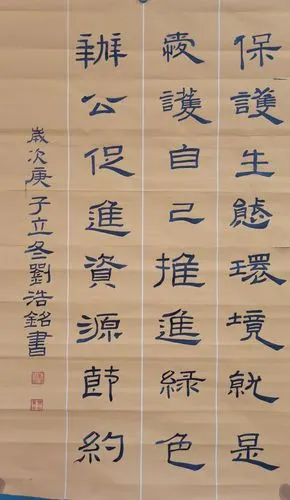 保護生態環境就是
愛護自己推進綠色
辦公促進資源節約
歲次庚子立冬劉浩銘書